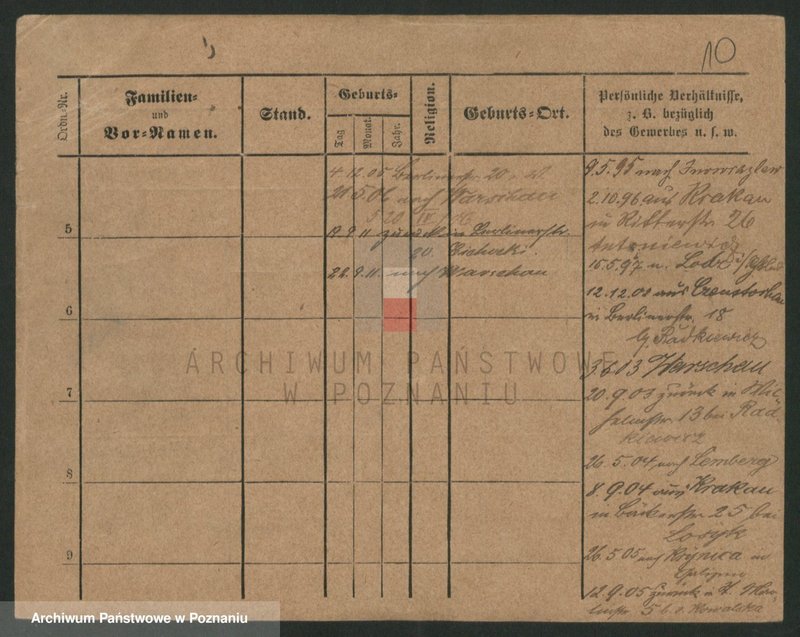 10
Ordn.-Nr.
Familien-
und
Vor-Namen.
Stand.
Geburts-
Tag
Monat.
Jahr.
Religion.
Geburts-Ort.
Persönliche Verhältnisse,
z. B. bezüglich
des Gewerbes u. s. w.
4.12.05 Berlinerstr. 20
21.5.06 nach Warschau
5
19.9.11 zurück in Berlinerstr.
20. Cichocki.
22.9.11 nach Warschau
6
7
8
9
9.5.95 nach Inowrazlaw
2.10.96 aus Krakau
in Ritterstr. 26
15.5.97 n. Lodz
12.12.00 aus Czenstochau
in Berlinerstr. 18
Radkiewicz
Warschau
20.9.03 zurück in Wil-
helmstr. 13 bei Rad-
kiewicz
26.5.04 nach Lemberg
8.9.04 aus Krakau
in Bäckerstr. 25 bei
26.5.05 nach Krynica in
12.9.05 zurück
ARCHIWUM PAŃSTWOWE
W POZNANIU
Archiwum Państwowe w Poznaniu